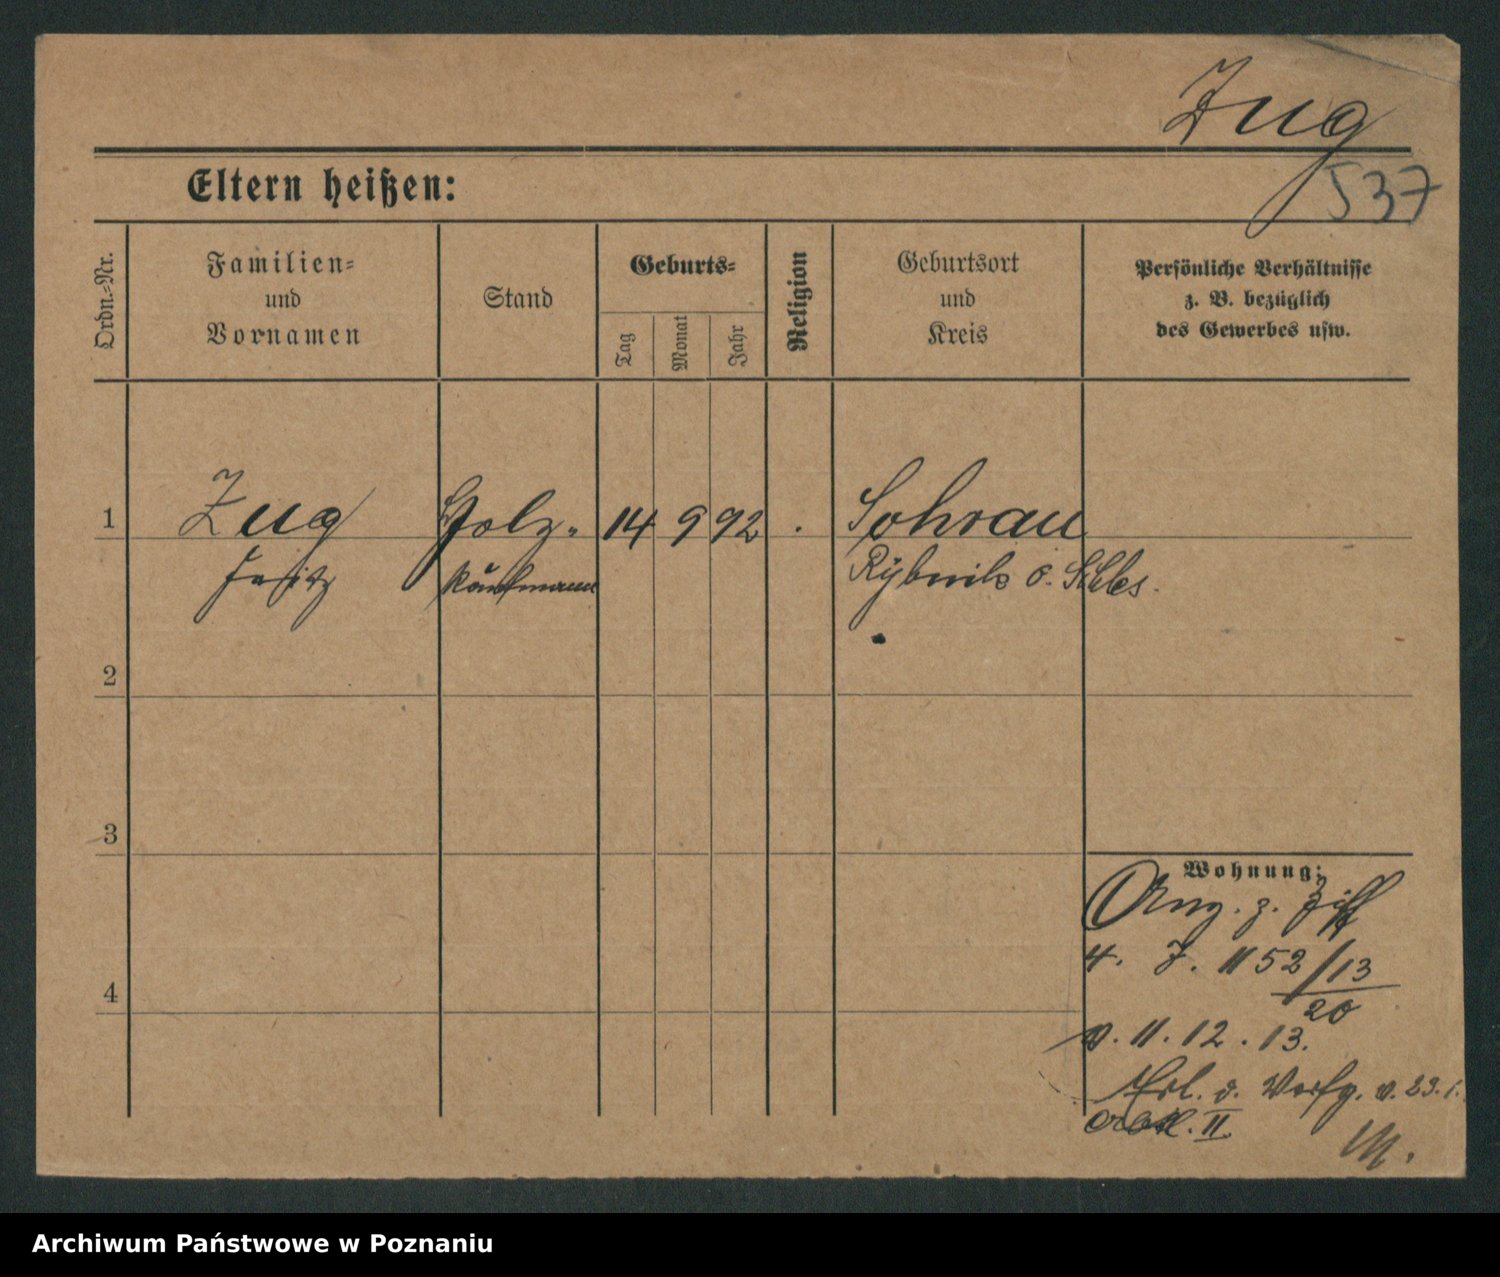 Zug
537
Eltern heißen:
Ordn.=Nr.
Familien=
und
Vornamen
Stand
Geburts=
Tag
Monat
Jahr
Religion
Geburtsort
und
Kreis
Persönliche Verhältnisse
z. B. bezüglich
des Gewerbes usw.
1
Zug Holz= 14 9 92 Sohrau
Fritz Kaufmann Rybnik O. Schles.
2
3
4
Wohnung:
Ang. z. Ziff
4. J. 1152/13
20
v. 11. 12. 13.
Erl. d. Verfg. v. 23.1.
II.
M.
Archiwum Państwowe w Poznaniu